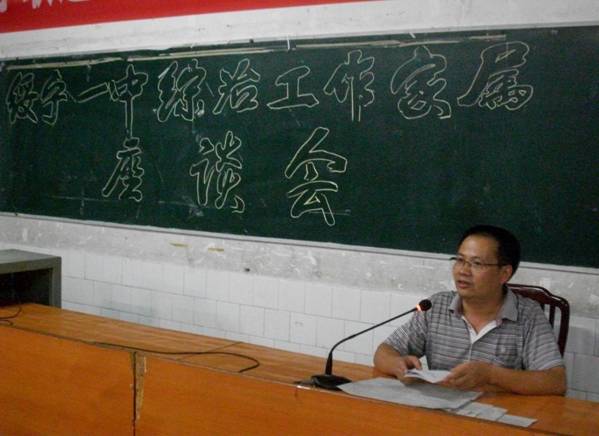 绥宁一中综治工作家属
座谈会